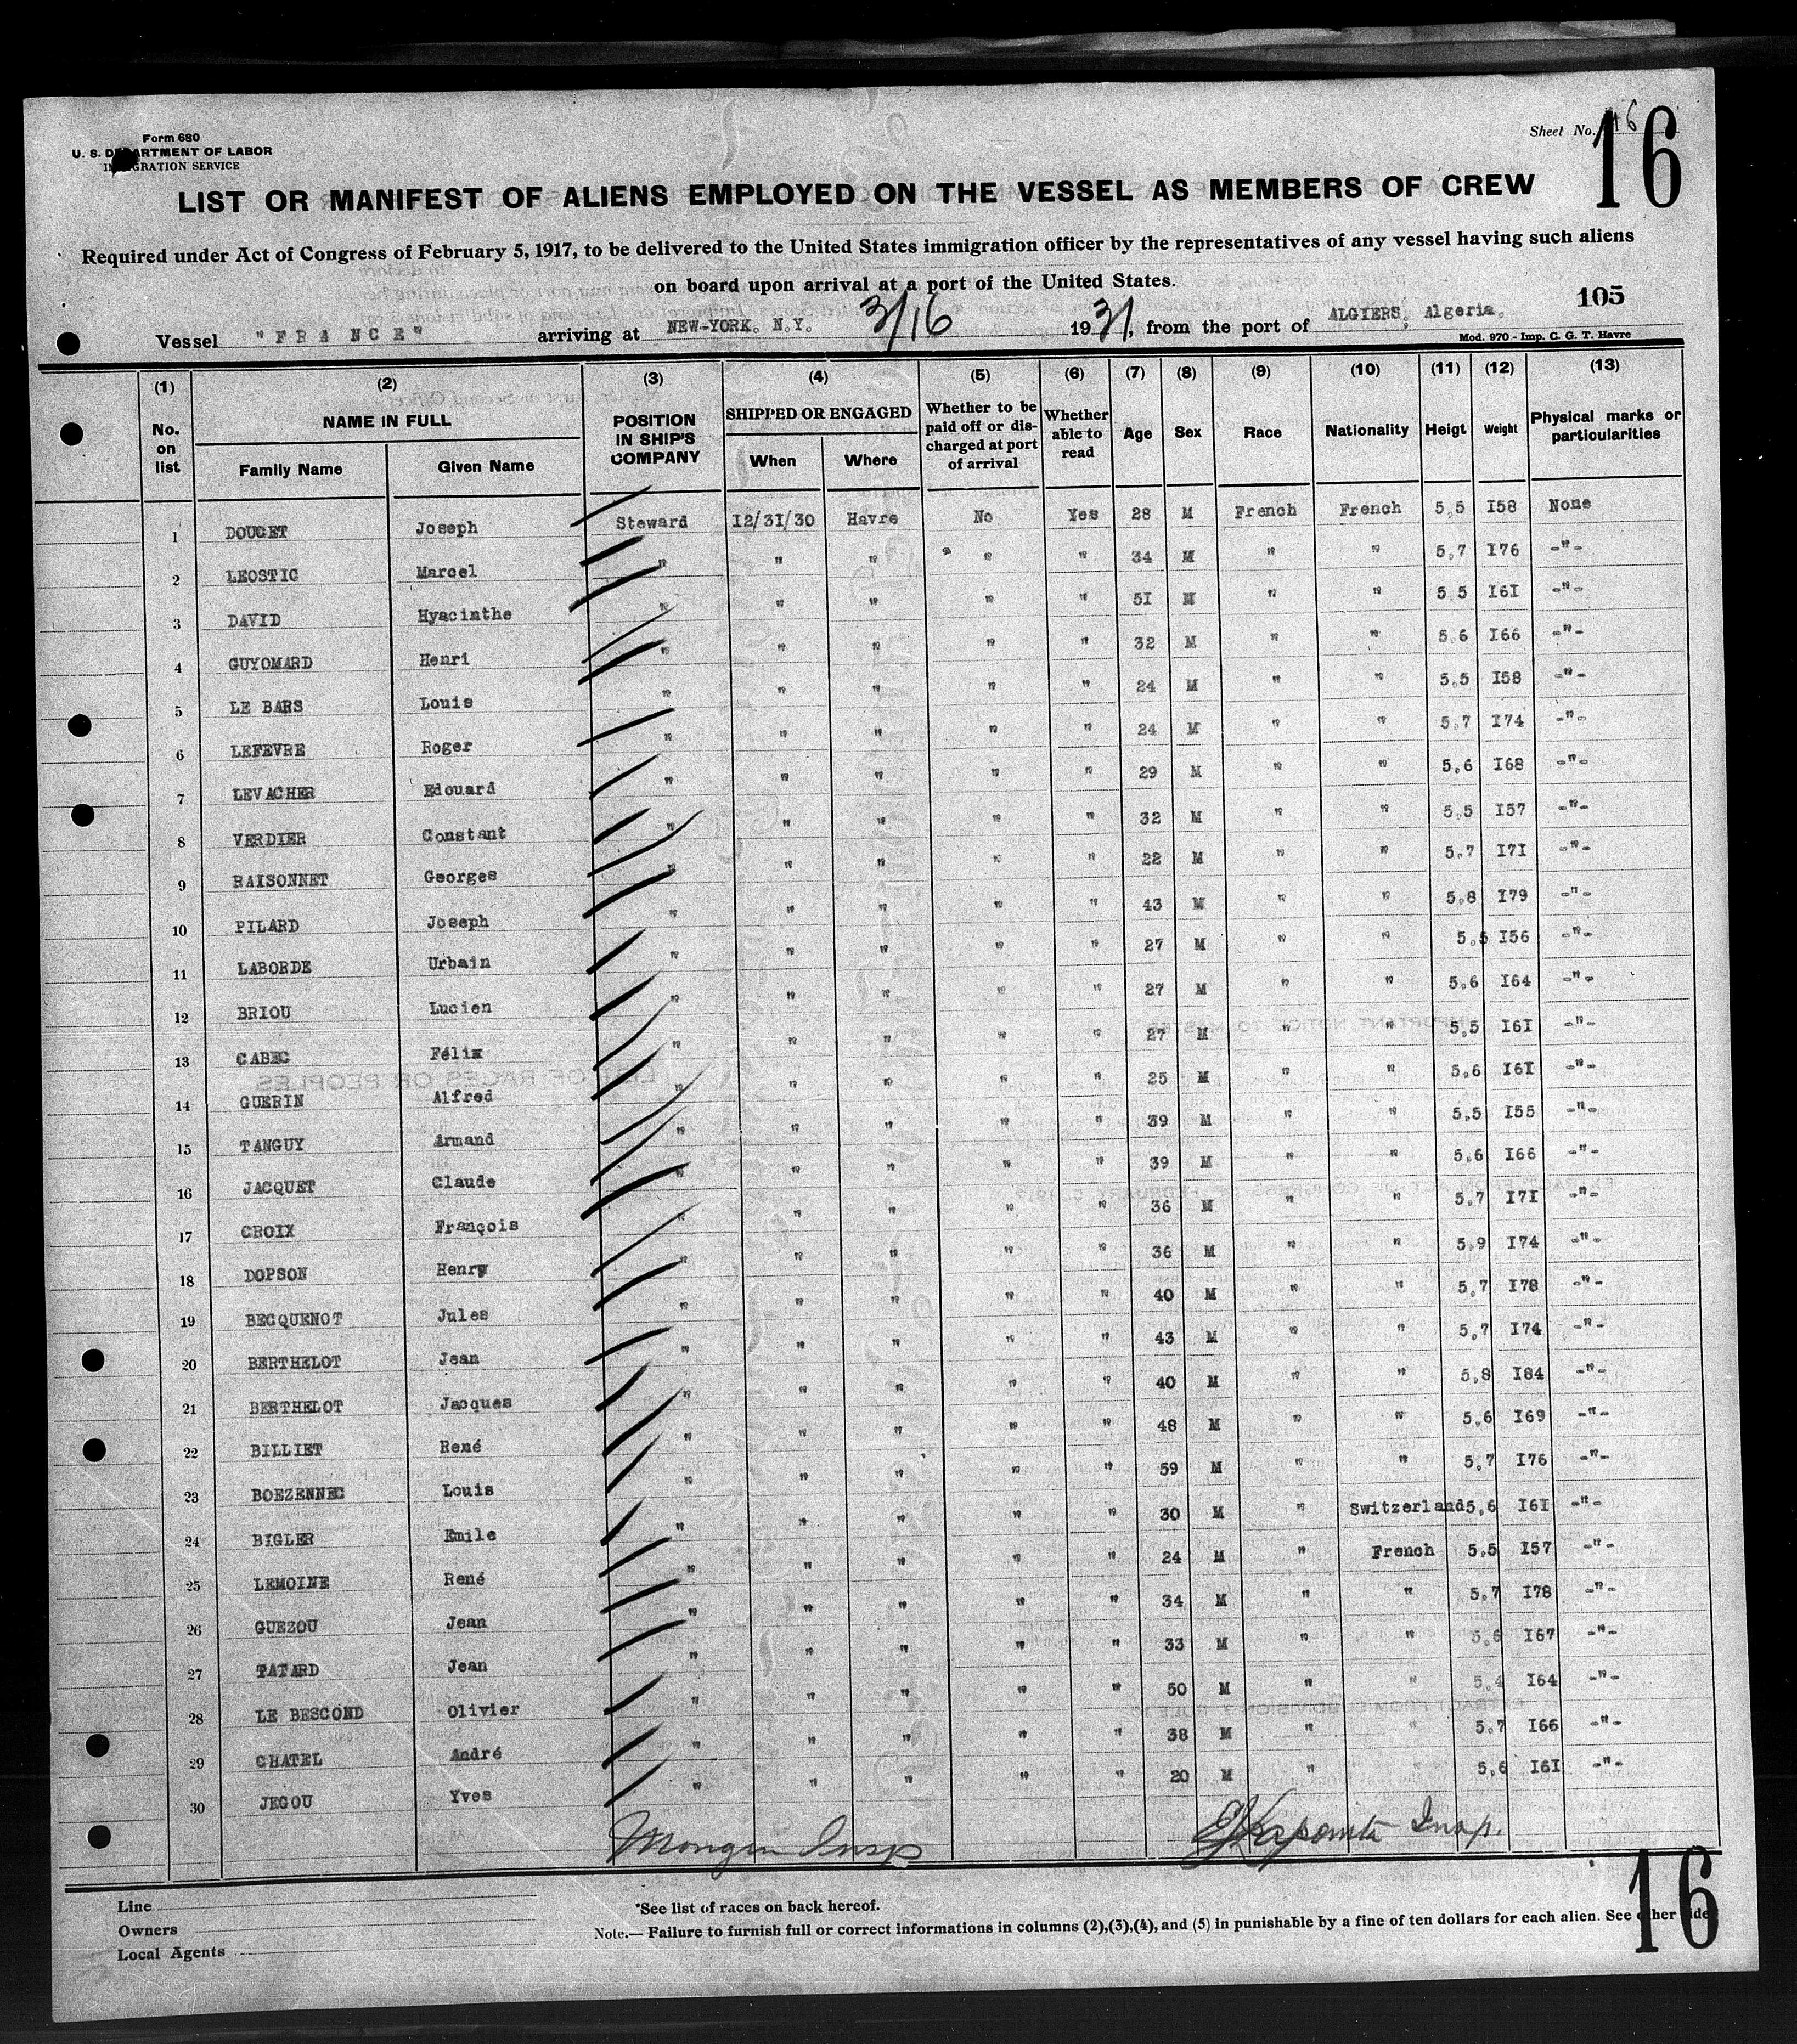 Form 680
U. S. DEPARTMENT OF LABOR
IMMIGRATION SERVICE
Sheet No. 16
16
LIST OR MANIFEST OF ALIENS EMPLOYED ON THE VESSEL AS MEMBERS OF CREW
Required under Act of Congress of February 5, 1917, to be delivered to the United States immigration officer by the representatives of any vessel having such aliens
on board upon arrival at a port of the United States.
105
Vessel "FRANCE" arriving at NEW-YORK. N.Y. 3/16 1931, from the port of ALGIERS, Algeria.
Mod. 970 - Imp. C. G. T. Havre
(1) (2) (3) (4) (5) (6) (7) (8) (9) (10) (11) (12) (13)
No. on list NAME IN FULL Family Name Given Name POSITION IN SHIP'S COMPANY SHIPPED OR ENGAGED When Where Whether to be paid off or discharged at port of arrival Whether able to read Age Sex Race Nationality Heigt Weight Physical marks or particularities
1 DOUCET Joseph Steward 12/31/30 Havre No Yes 28 M French French 5,5 I58 None
2 LEOSTIC Marcel " " " " " 34 M " " 5,7 I76 -"-
3 DAVID Hyacinthe " " " " " 5I M " " 5 5 I6I -"-
4 GUYOMARD Henri " " " " " 32 M " " 5 6 I66 -"-
5 LE BARS Louis " " " " " 24 M " " 5,5 I58 -"-
6 LEFEVRE Roger " " " " " 24 M " " 5,7 I74 -"-
7 LEVACHER Edouard " " " " " 29 M " " 5,6 I68 -"-
8 VERDIER Constant " " " " " 32 M " " 5,5 I57 -"-
9 RAISONNET Georges " " " " " 22 M " " 5,7 I7I -"-
10 PILARD Joseph " " " " " 43 M " " 5,8 I79 -"-
11 LABORDE Urbain " " " " " 27 M " " 5,5 I56 -"-
12 BRIOU Lucien " " " " " 27 M " " 5,6 I64 -"-
13 CABEC Félix " " " " " 27 M " " 5,5 I6I -"-
14 GUERIN Alfred " " " " " 25 M " " 5,6 I6I -"-
15 TANGUY Armand " " " " " 39 M " " 5,5 I55 -"-
16 JACQUET Claude " " " " " 39 M " " 5,6 I66 -"-
17 CROIX François " " " " " 36 M " " 5,7 I7I -"-
18 DOPSON Henry " " " " " 36 M " " 5,9 I74 -"-
19 BECQUENOT Jules " " " " " 40 M " " 5,7 I78 -"-
20 BERTHELOT Jean " " " " " 43 M " " 5,7 I74 -"-
21 BERTHELOT Jacques " " " " " 40 M " " 5,8 I84 -"-
22 BILLIET René " " " " " 48 M " " 5,6 I69 -"-
23 BOEZENNEC Louis " " " " " 59 M " " 5,7 I76 -"-
24 BIGLER Emile " " " " " 30 M " Switzerland 5,6 I6I -"-
25 LEMOINE René " " " " " 24 M " French 5,5 I57 -"-
26 GUEZOU Jean " " " " " 34 M " " 5,7 I78 -"-
27 TATARD Jean " " " " " 33 M " " 5,6 I67 -"-
28 LE BESCOND Olivier " " " " " 50 M " " 5,4 I64 -"-
29 CHATEL André " " " " " 38 M " " 5,7 I66 -"-
30 JEGOU Yves " " " " " 20 M " " 5,6 I6I -"-
Insp Insp.
Line
Owners
Local Agents
*See list of races on back hereof.
Note.— Failure to furnish full or correct informations in columns (2),(3),(4), and (5) in punishable by a fine of ten dollars for each alien. See other side
16